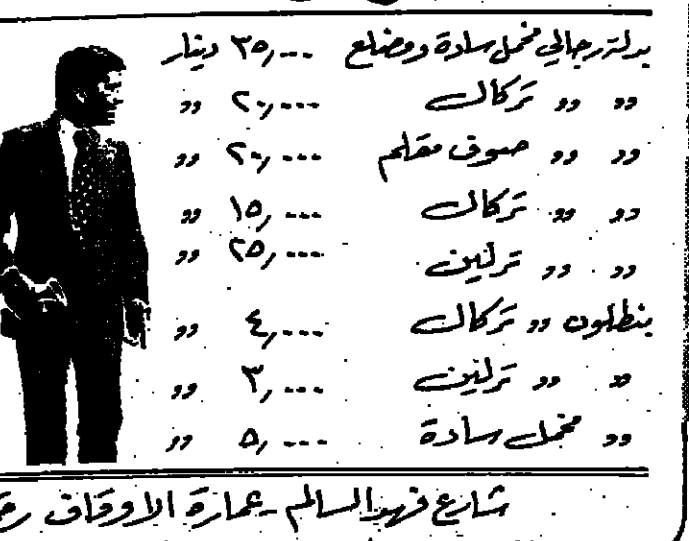 بدلة رجالي مخمل سادة ومضلع ٣٥,٠٠٠ دينار
״ ״ تركال ٢٠,٠٠٠ ״
״ ״ صوف مقلم ٢٠,٠٠٠ ״
״ ״ تركال ١٥,٠٠٠ ״
״ ״ ترلين ٢٥,٠٠٠ ״
بنطلون ״ تركال ٤,٠٠٠ ״
״ ״ ترلين ٣,٠٠٠ ״
״ مخمل سادة ٥,٠٠٠ ״
شارع فهد السالم - عمارة الاوقاف